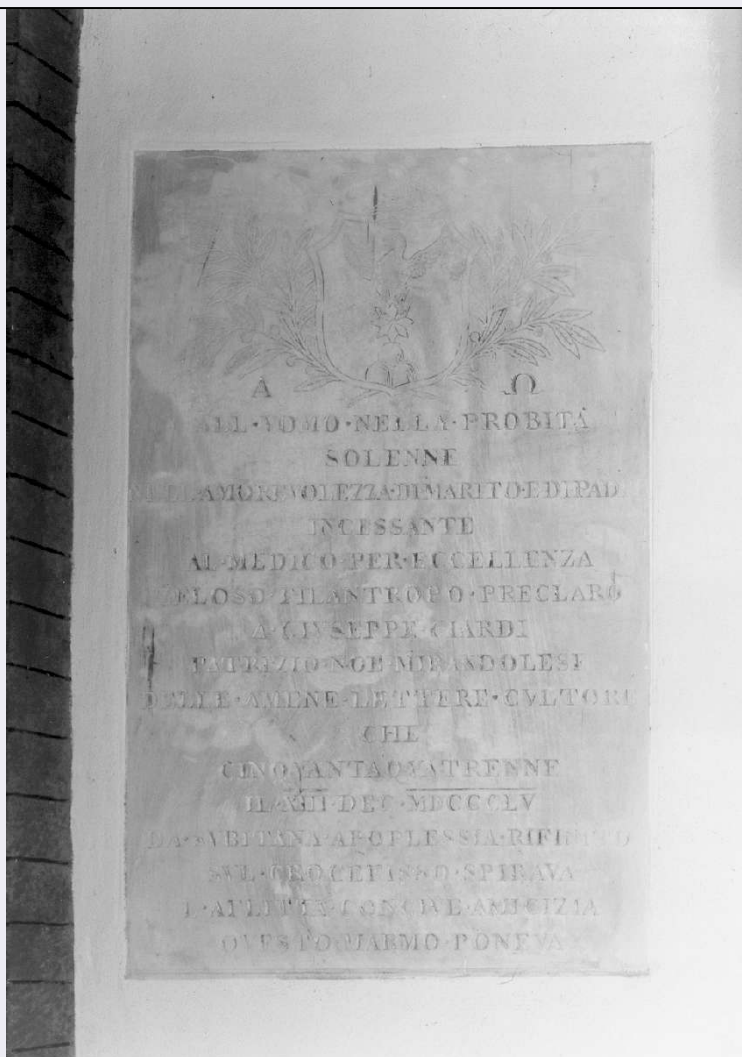 Α Ω
ALL·VOMO·NELLA·PROBITÁ
SOLENNE
AMOREVOLEZZA·DI·MARITO·E·DI·PAD
INCESSANTE
AL·MEDICO·PER·ECCELLENZA
ZELOSO·FILANTROPO·PRECLARO
A·GIVSEPPE·CIARDI
PATRIZIO·NOB·MIRANDOLESE
DELLE·AMENE·LETTERE·CVLTORE
CHE
CINQVANTAQVATRENNE
IL·XIII·DEC·MDCCCLV
DA·SVBITANA·APOPLESSIA·RIFINITO
SVL·CROCEFISSO·SPIRAVA
L·AFLITTA·AMICIZIA
QVESTO·MARMO·PONEVA